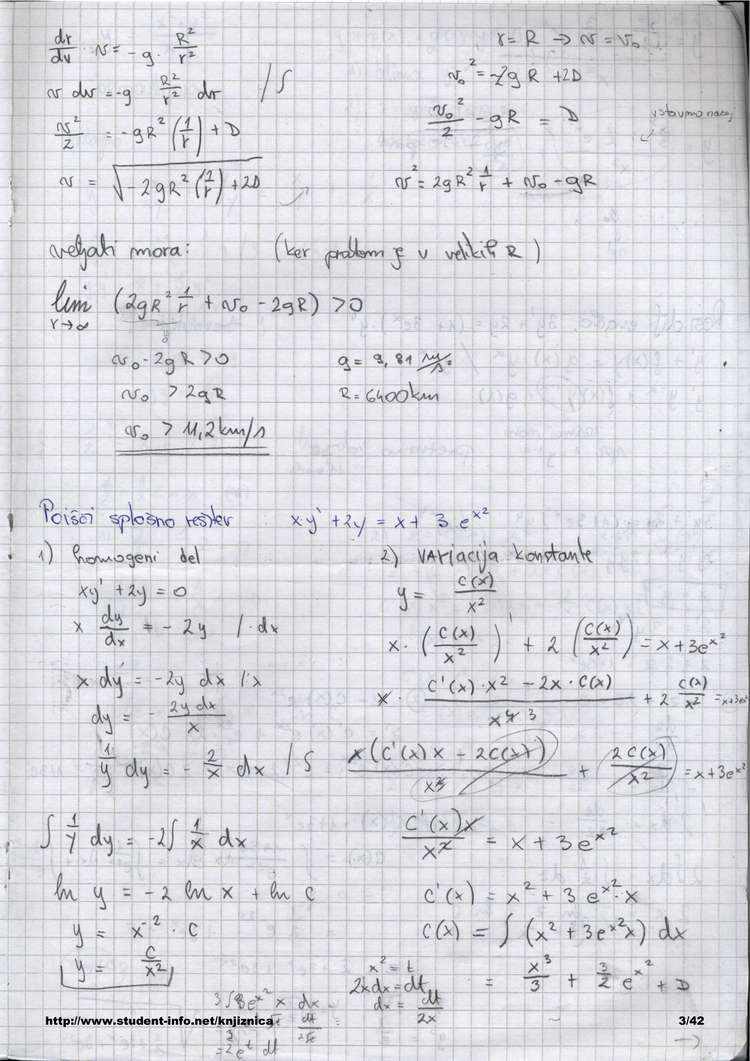 dr/dv · v = -g · R²/r²
v dv = -g R²/r² dr /∫
v²/2 = -gR² (1/r) + D
v = √(-2gR² (1/r) + 2D)
r = R → v = v₀
v₀² = -2gR + 2D
v₀²/2 - gR = D
v² = 2gR² 1/r + v₀ - gR
veljati mora: (ker problem je v velikih R)
lim r→∞ (2gR² 1/r + v₀ - 2gR) > 0
v₀ - 2gR > 0
v₀ > 2gR
v₀ > 11,2 km/s
g = 9,81 m/s²
R = 6400 km
Poišči splošno rešitev xy' + 2y = x + 3 e^x²
1) homogeni del
xy' + 2y = 0
x dy/dx = -2y /·dx
x dy = -2y dx /:x
dy = - 2y dx/x
1/y dy = - 2/x dx /∫
∫ 1/y dy = -2∫ 1/x dx
ln y = -2 ln x + ln c
y = x^-2 · c
y = c/x²
2) variacija konstante
y = c(x)/x²
x · (c(x)/x²)' + 2 (c(x)/x²) = x + 3e^x²
x · (c'(x)·x² - 2x·c(x))/x⁴ ³ + 2 c(x)/x² = x+3e^x²
x(c'(x)x - 2c(x))/x³ + 2c(x)/x² = x+3e^x²
c'(x)x/x² = x + 3e^x²
c'(x) = x² + 3e^x²·x
c(x) = ∫ (x² + 3e^x² x) dx
= x³/3 + 3/2 e^x² + D
x² = t
2xdx = dt
dx = dt/2x
http://www.student-info.net/knjiznica
3/42